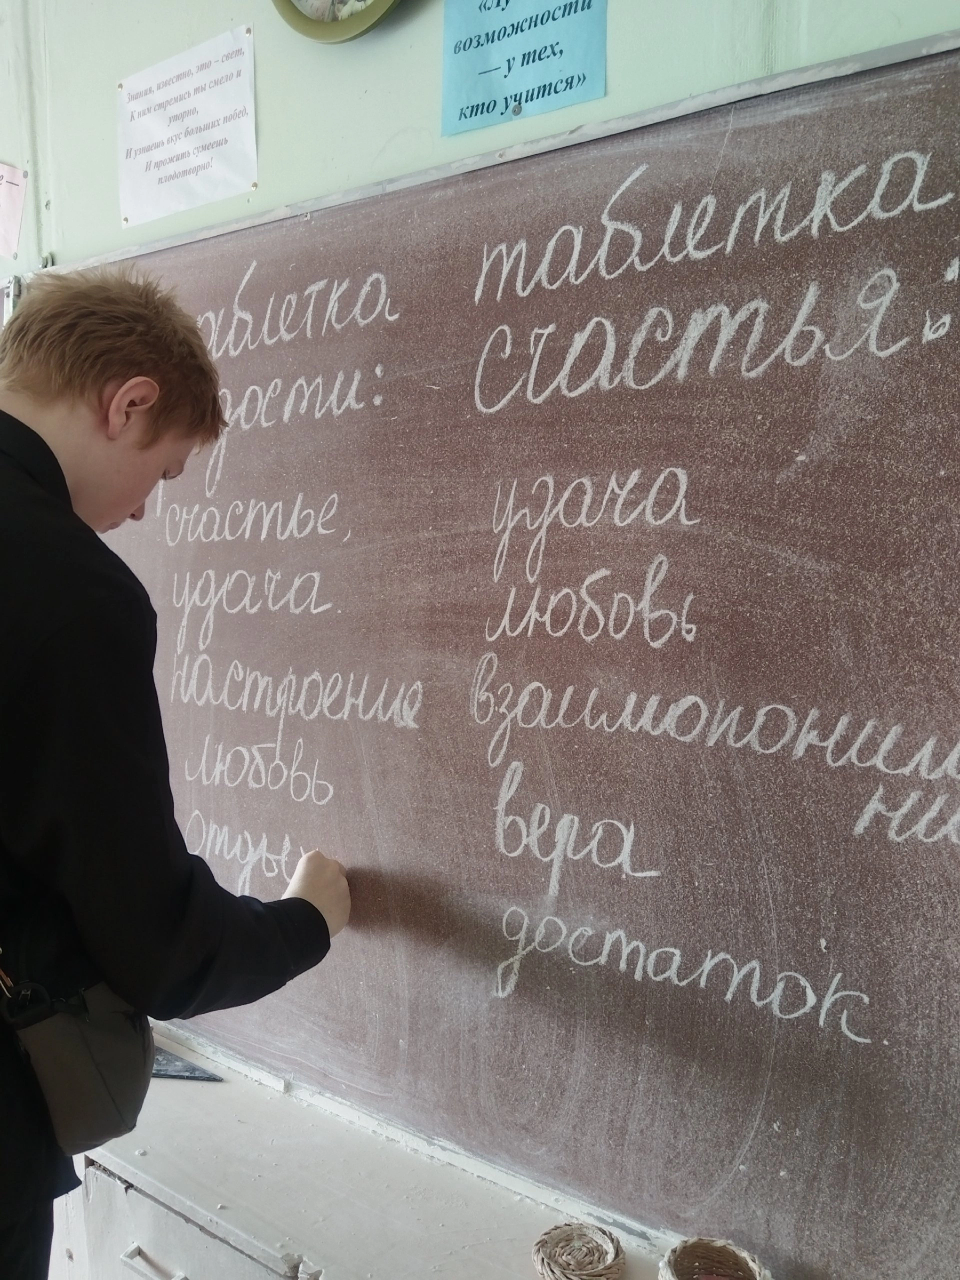 возможности
— у тех,
кто учится»
Знания, известно, это – свет,
К ним стремись ты смело и
упорно,
И узнаешь вкус больших побед,
И прожить сумеешь
плодотворно!
аблетка
дости:
счастье,
удача.
настроение
любовь
отды
таблетка
счастья:
удача
любовь
взаимопоним
ни
вера
достаток.